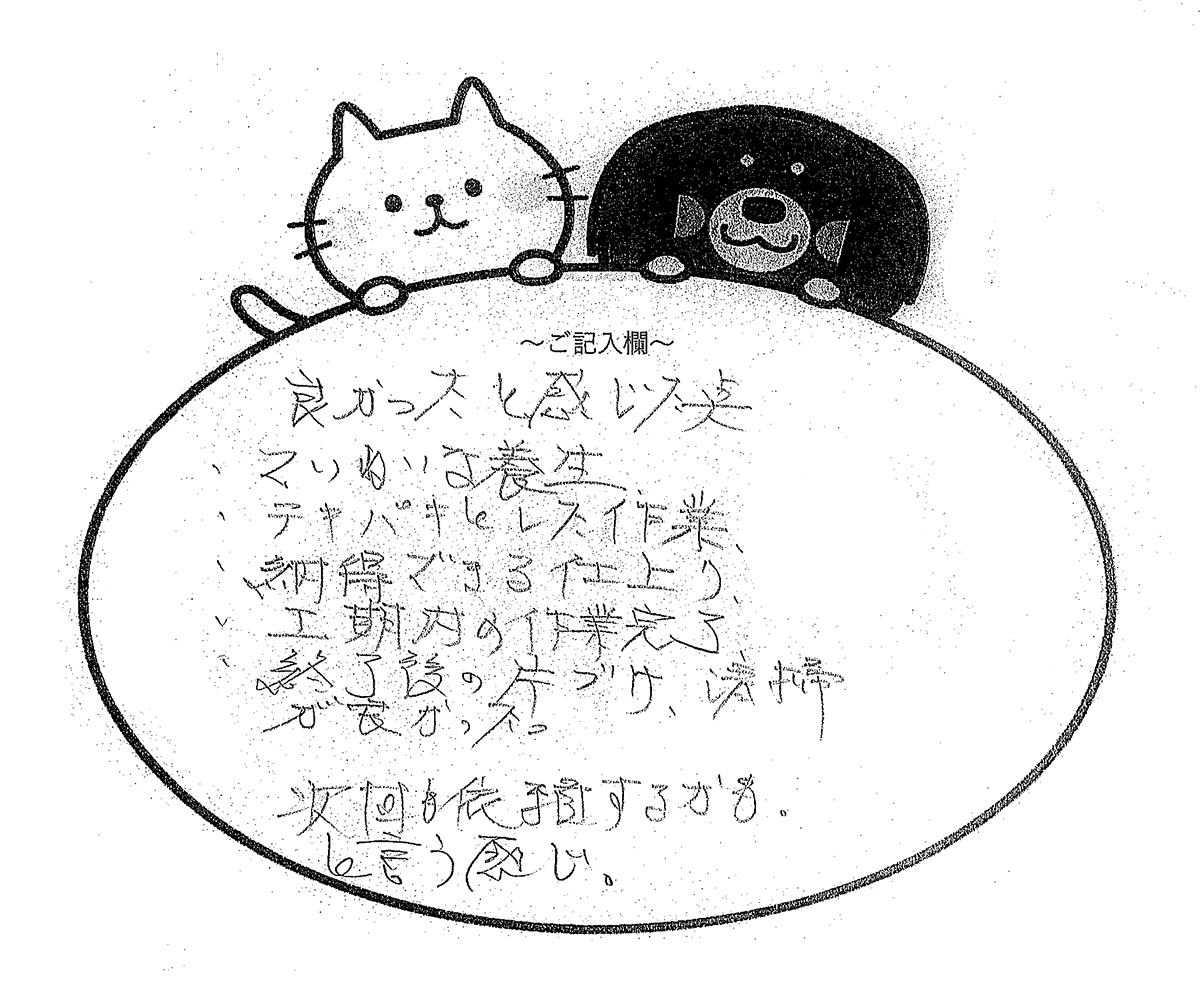 ～ご記入欄～
良かったと感じた点
、ていねいな養生
、テキパキとした作業、
、納得できる仕上り、
、工期内の作業完了
、終了後の片づけ、清掃
が良かった
次回も依頼するかも。
と言う感じ。